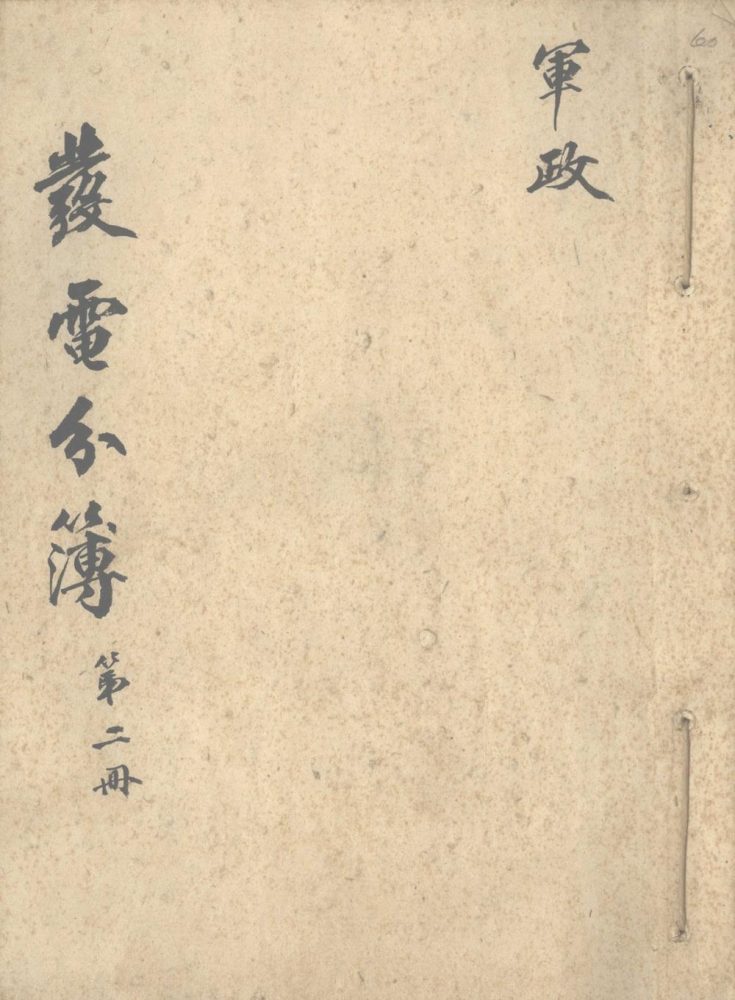 60
軍政
發電分簿 第二冊